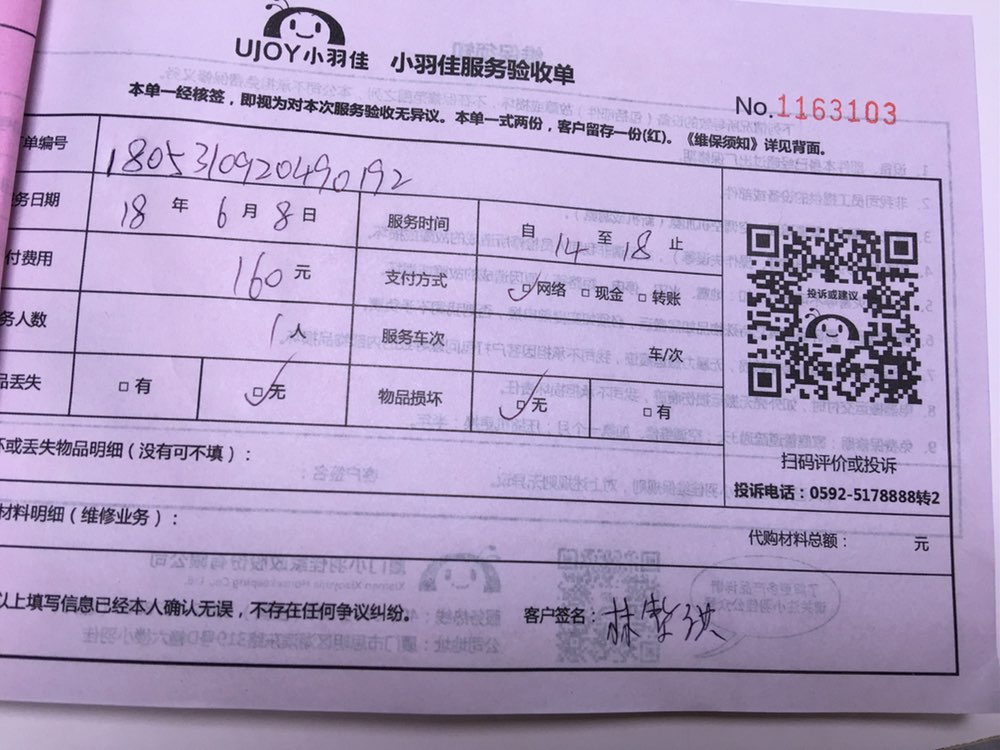 UJOY小羽佳 小羽佳服务验收单
No.1163103
本单一经核签，即视为对本次服务验收无异议。本单一式两份，客户留存一份(红)。《维保须知》详见背面。
单编号 1805310920490192
务日期 18 年 6 月 8 日 服务时间 自 14 至 18 止
付费用 160 元 支付方式 □网络 □现金 □转账
务人数 1 人 服务车次 车/次
品丢失 □有 □无 物品损坏 □无 □有
投诉或建议
扫码评价或投诉
投诉电话：0592-5178888转2
坏或丢失物品明细（没有可不填）：
材料明细（维修业务）：
代购材料总额： 元
以上填写信息已经本人确认无误，不存在任何争议纠纷。
客户签名：林